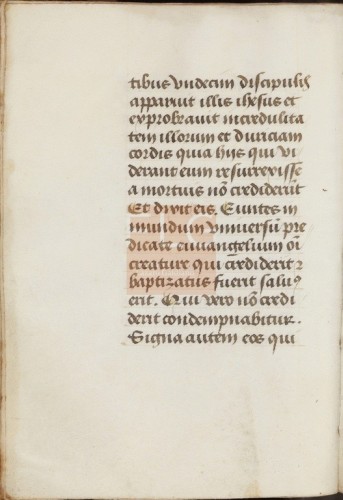 tibus vndecim discipulis
apparuit illis ihesus et
exprobrauit incredulita
tem illorum et duriciam
cordis quia hijs qui vi
derant eum resurrexisse
a mortuis nō crediderūt
Et dixit eis. Euntes in
mundum vniuersū pre
dicate euuangelium oī
creature qui crediderit ⁊
baptizatus fuerit saluꝰ
erit. Qui vero nō credi
derit condempnabitur.
Signa autem eos qui